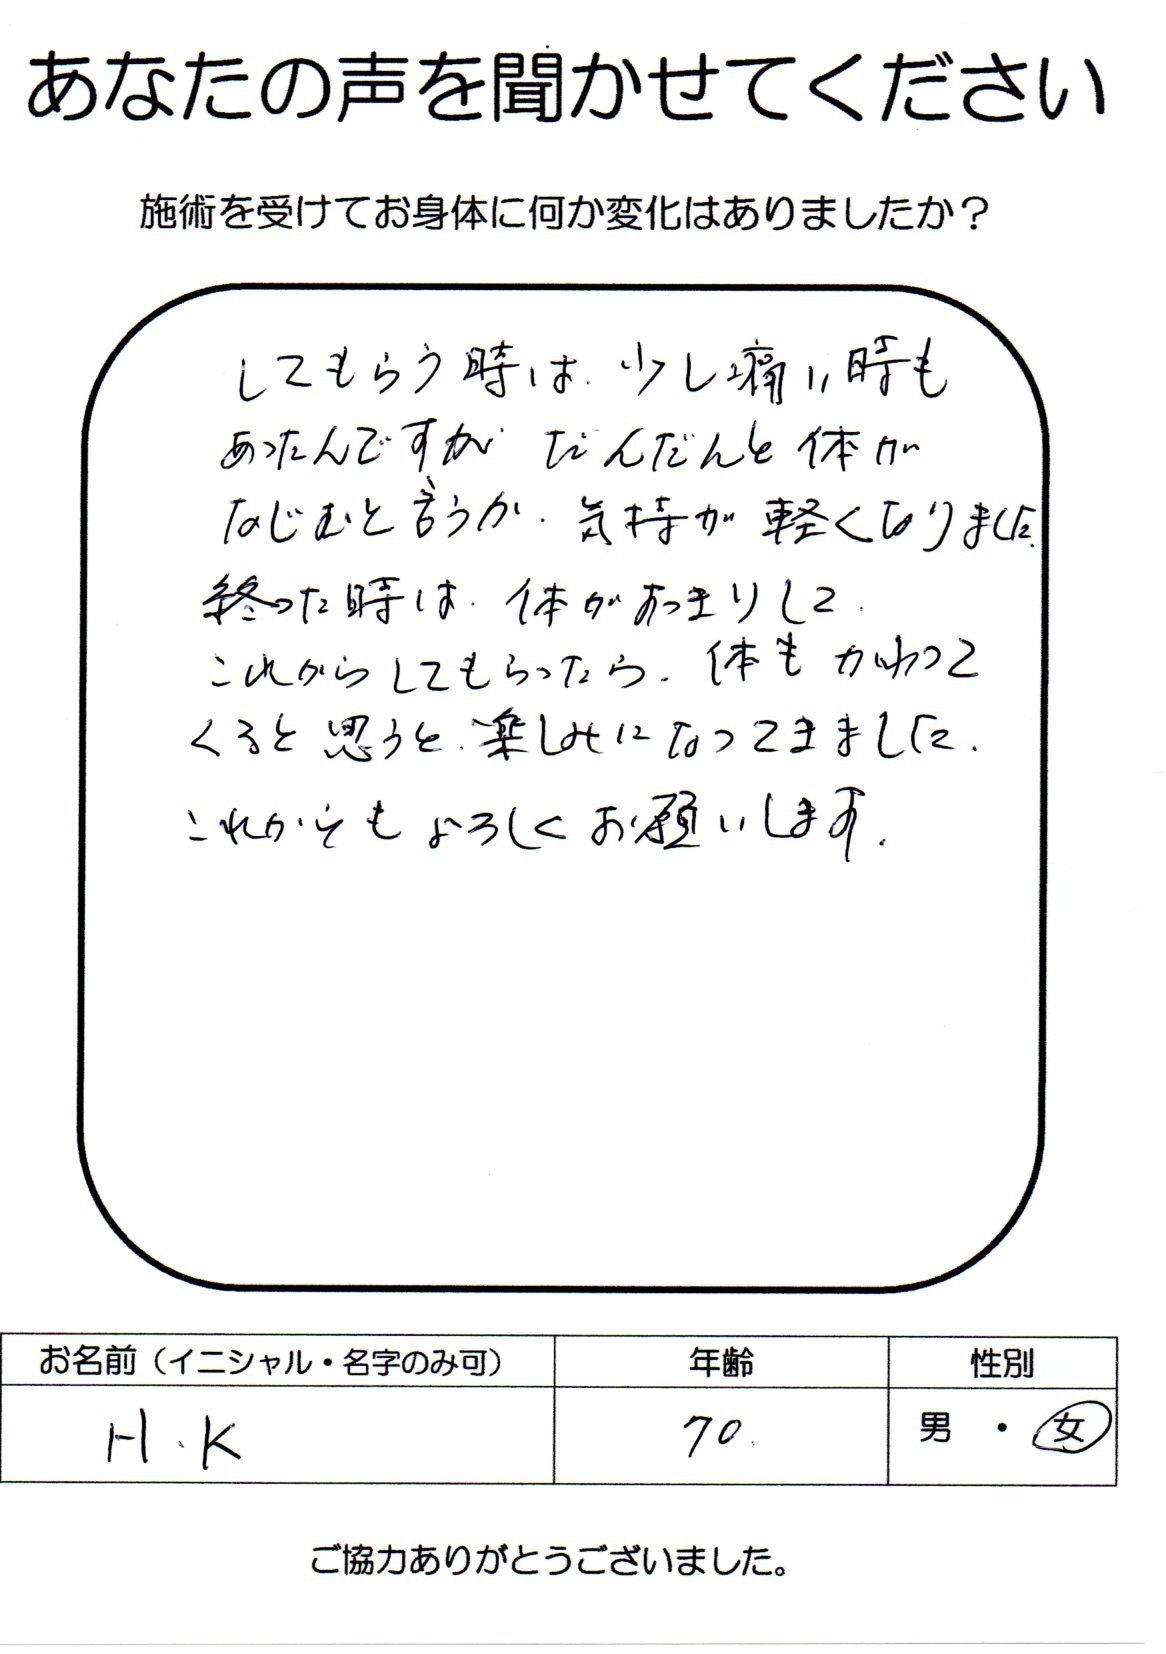 あなたの声を聞かせてください
施術を受けてお身体に何か変化はありましたか？
してもらう時は、少し痛い時も
あったんですが だんだんと体が
なじむと言うか、気持が軽くなりました
終った時は、体があっまりして、
これからしてもらったら、体もかわって
くると思うと、楽しみになってきました。
これからもよろしくお願いします。
お名前（イニシャル・名字のみ可） 年齢 性別
H.K 70 男・女
ご協力ありがとうございました。